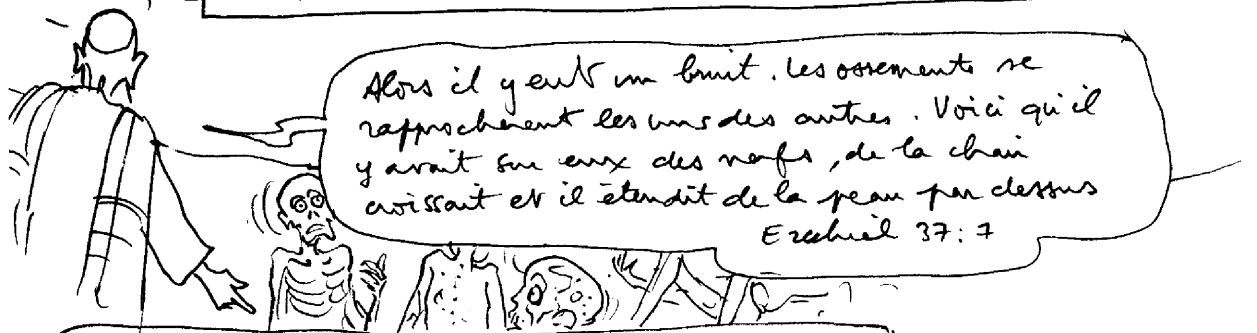 Alors il y eut un bruit. Les ossements se
rapprochèrent les uns des autres. Voici qu'il
y avait sur eux des nerfs, de la chair
croissait et il étendit de la peau par dessus
Ezechiel 37:7